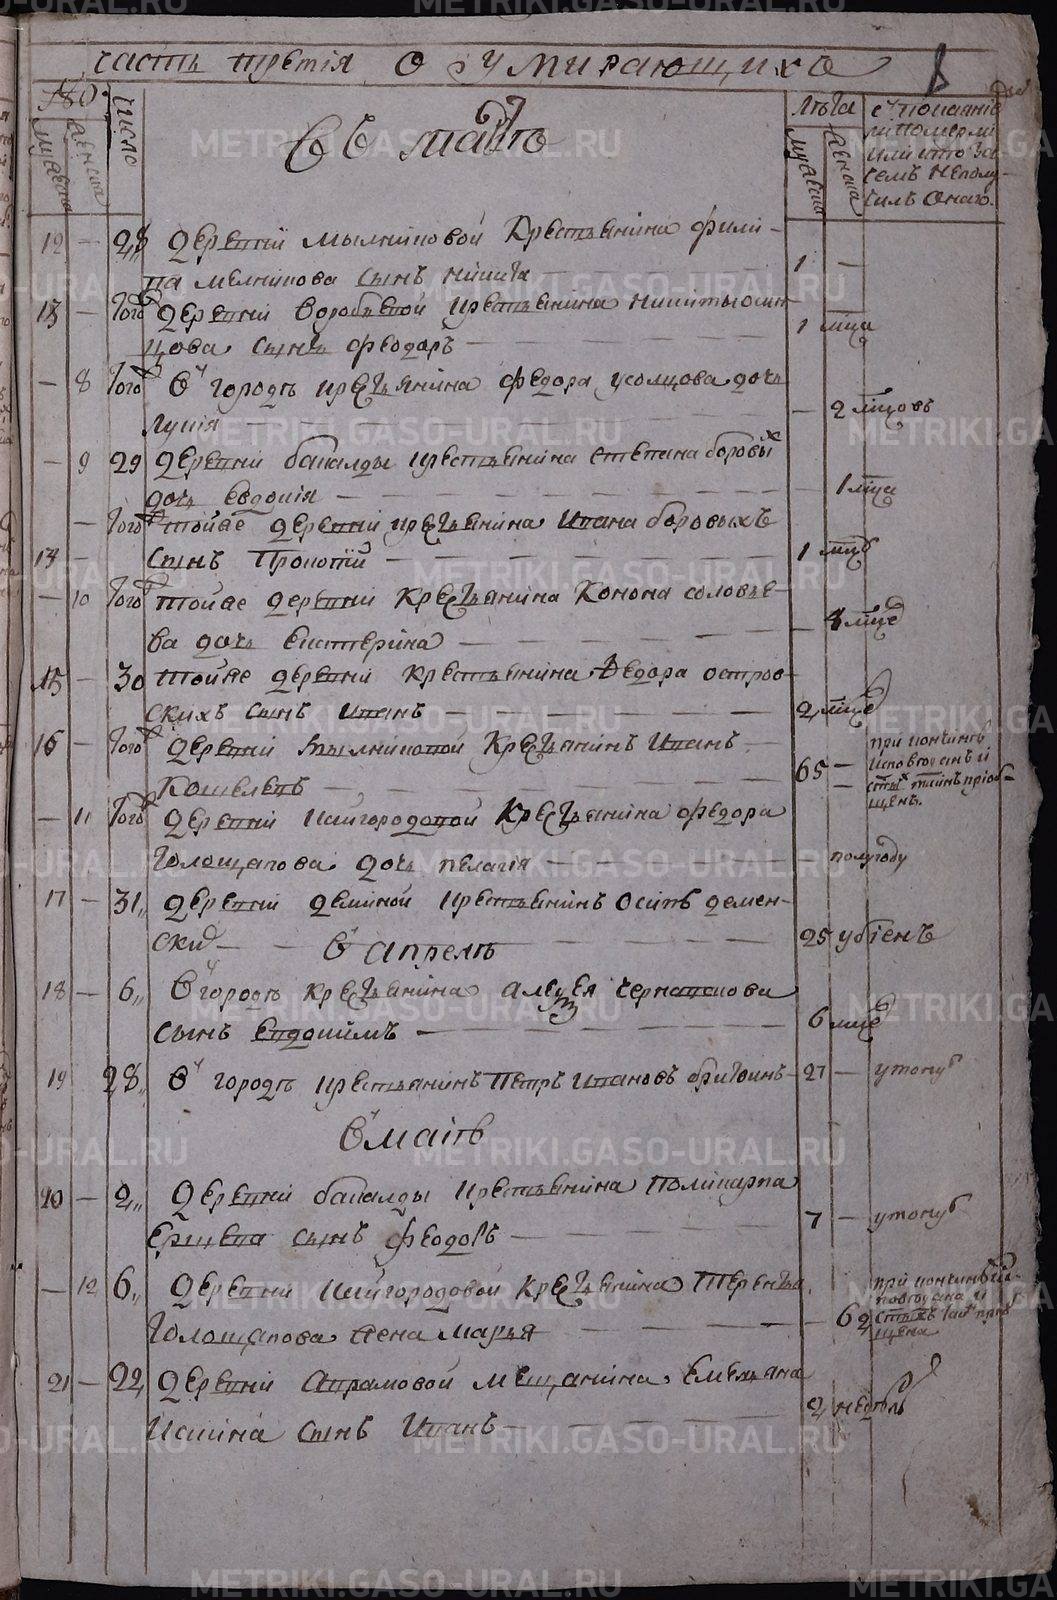 часть третія о умирающихъ
No.
мужеска
женска
число
лѣта
мужеска
женска
съ покаяніе
ли померли
или кто за
чемъ неполу-
чилъ онаго.
Въ маіѣ
12 — 28 деревни мылниковой крестьянина фили-
па мелникова сынъ никита 1 —
13 — того деревни воробьевой крестьянина никиты осин
цова сынъ феодоръ 1 мца
— 8 того въ городѣ крестьянина федора усолцова дочь
лукія — 2 мцовъ
— 9 29 деревни бакалды крестьянина степана боровых
дочь евдокія — 1 мца
— того тойже деревни крестьянина ивана боровыхъ
14 — сынъ прокопій — 1 мца
— 10 того тойже деревни крестьянина конона соловье-
ва дочь екатерина — мцед
15 — 30 тойже деревни крестьянина федора остров-
скихъ сынъ иванъ 2 мце
16 — того деревни мылниковой крестьянинъ иванъ
кошелевъ 65 —
при кончинѣ
исповѣданъ и
стых таинъ пріоб-
щенъ.
— 11 того деревни кайгородовой крестьянина федора
голощапова дочь пелагія — полугоду
17 — 31 деревни деминой крестьянинъ осипъ демен-
ски 25 убіенъ
въ апрелѣ
18 — 6 въ городѣ крестьянина алексея черпакова
сынъ евдокимъ 6 мце
19 28 въ городѣ крестьянинъ петръ ивановъ бритвинъ 27 — утопъ
въ маіѣ
20 — 2 деревни бакалды крестьянина поликарпа
ершева сынъ феодоръ 7 — утопъ
— 12 6 деревни кайгородовой крестьянина терентья
голощапова жена марья — 62
при кончинѣ ис-
повѣдана и
стыхъ таин пріоб
щена
21 — 22 деревни аврамовой мещанина емельяна
исакина сынъ иванъ 2 недель
METRIKI.GASO-URAL.RU